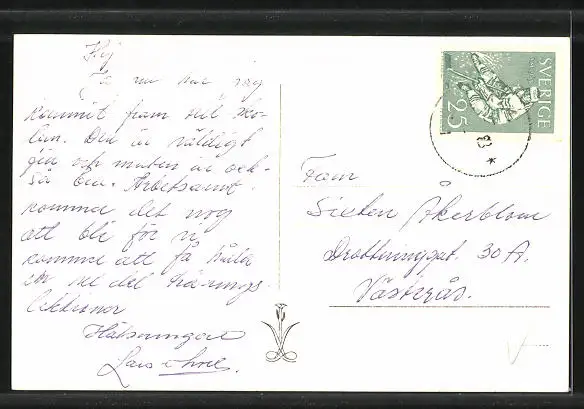 Hej
Ja nu har jag
kommit fram till sko-
lan. Den är väldigt
fin och maten är ock-
så bra. Arbetsamt
komma det nog
att bli för vi
komma att få hålla
en hel del
lektioner
Hälsningar
Lars
SVERIGE
25
Fam
Åkerblom
Drottninggat. 30 A.
Västerås.